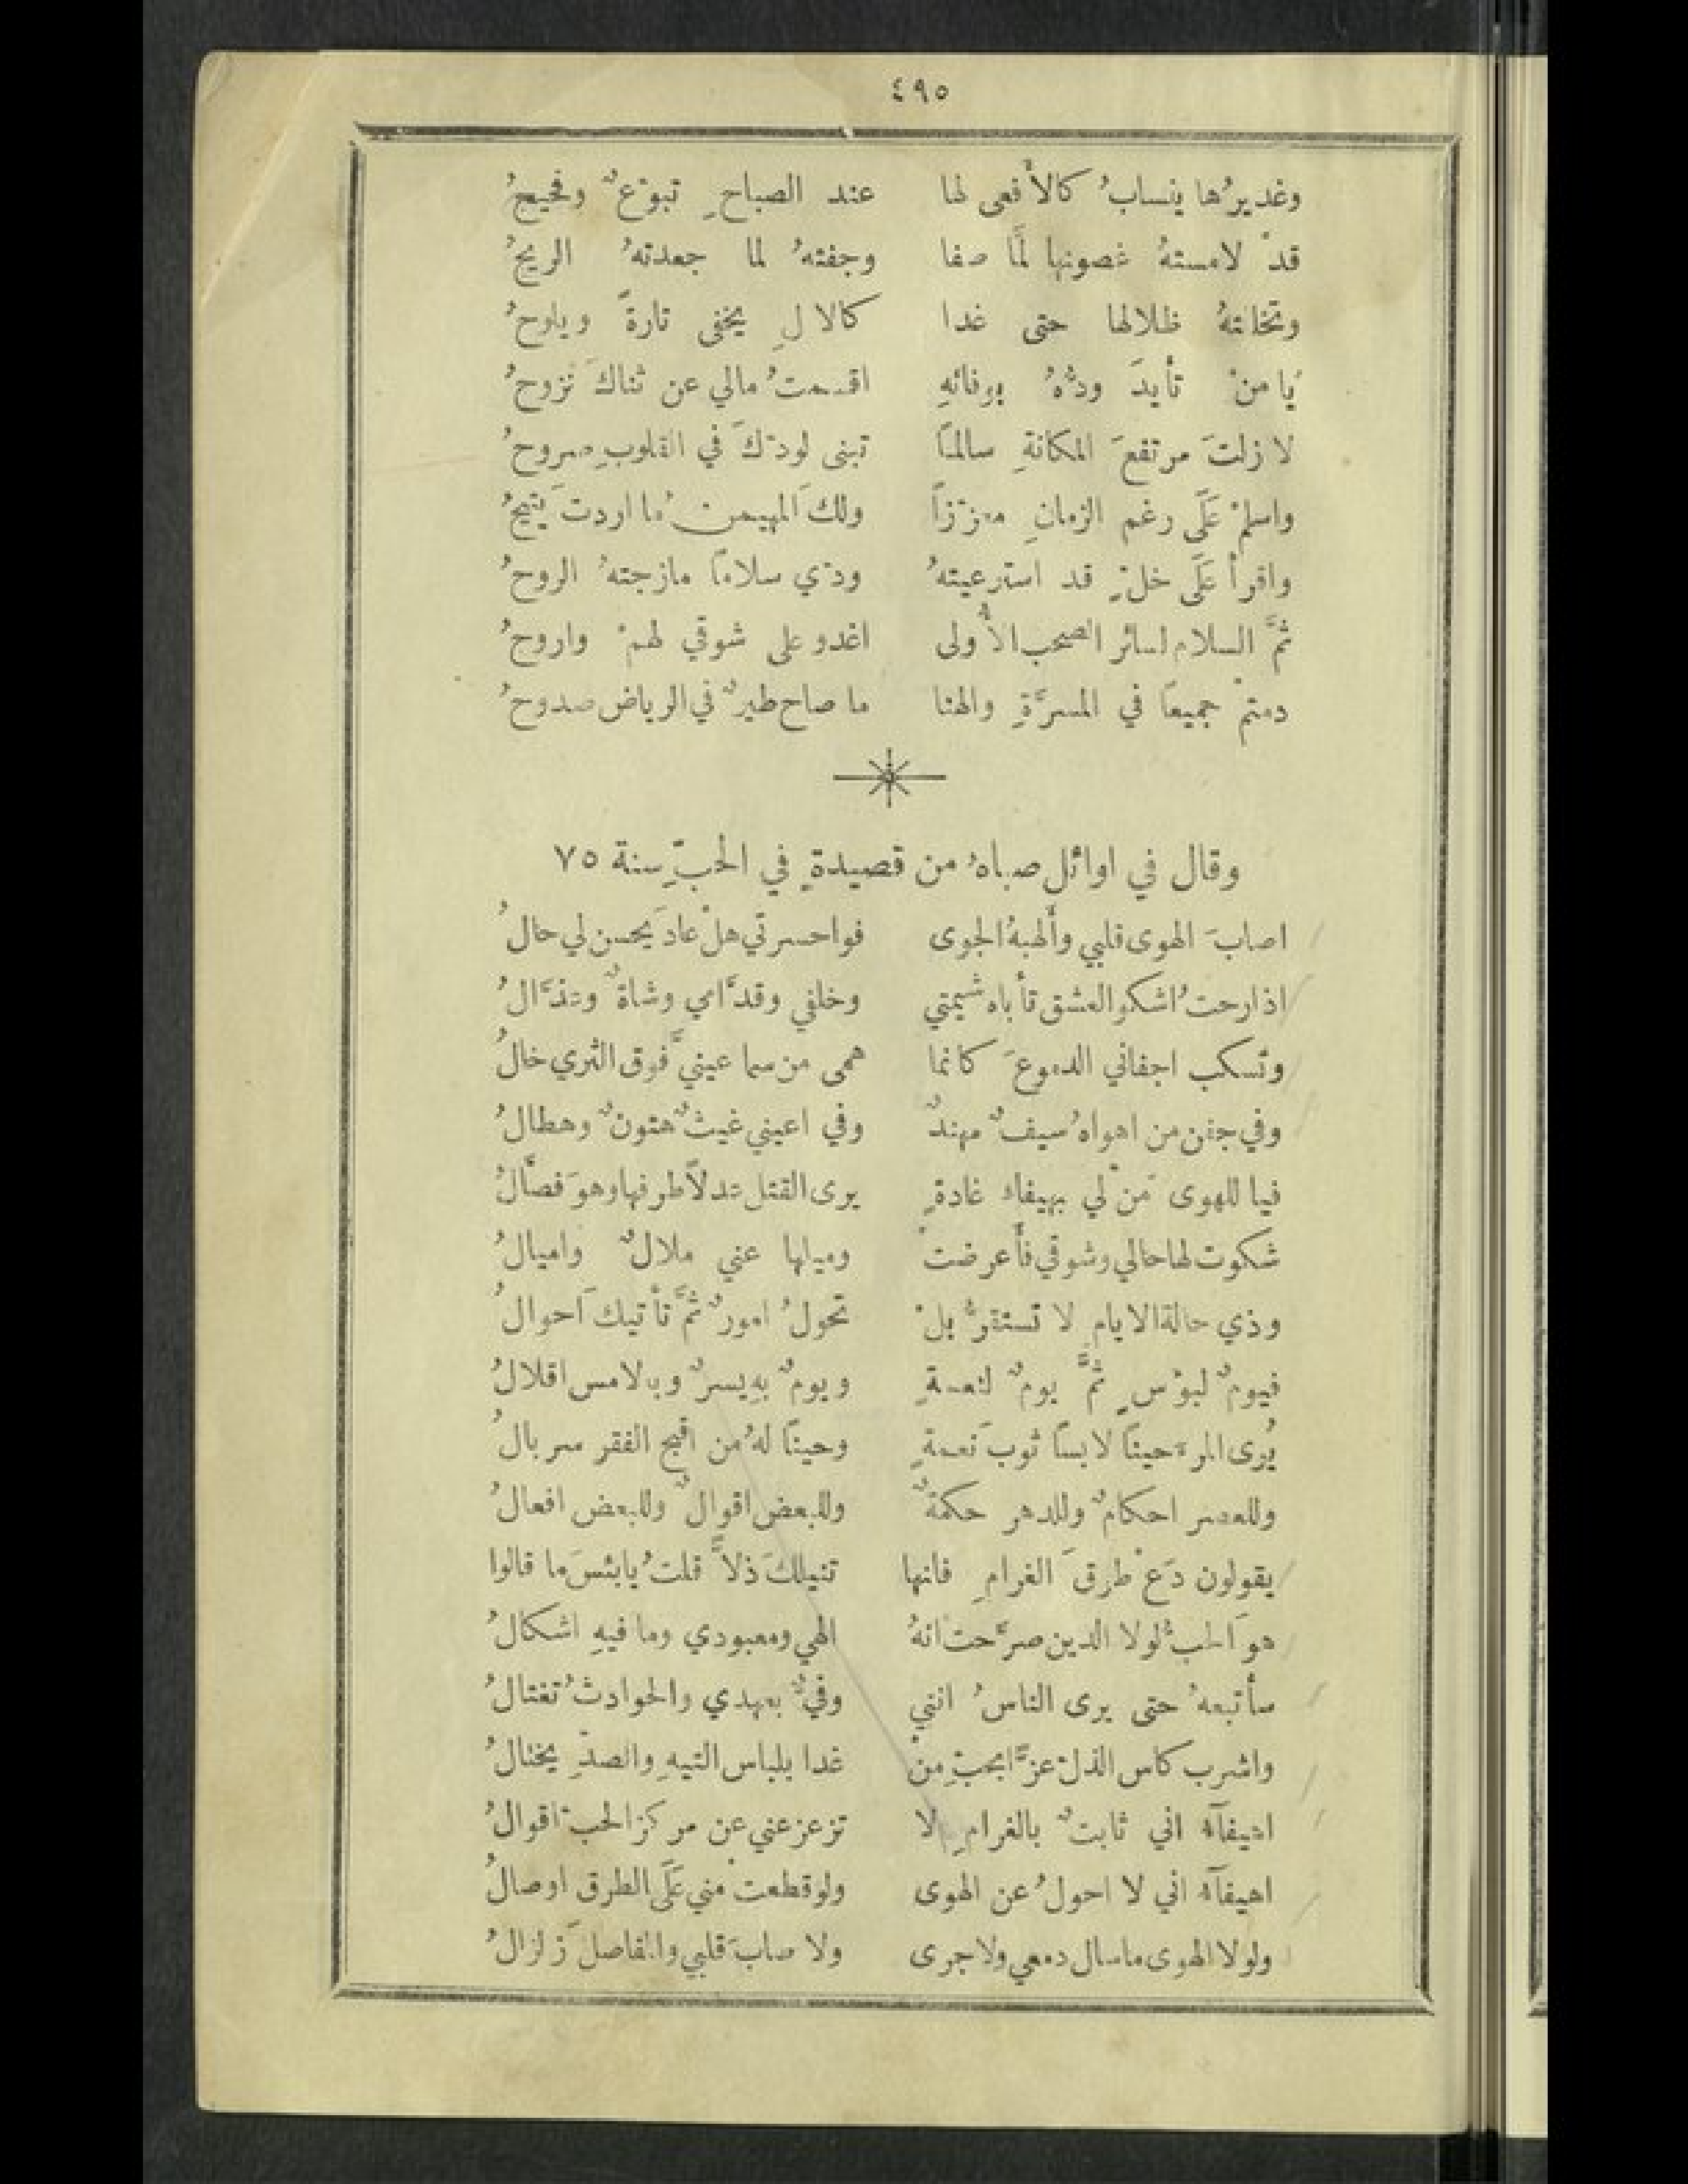 ٤٩٥
وغديرُها ينسابُ كالأفعى لها عند الصباحِ تبوّعٌ وفحيحُ
قدْ لامستهُ غصونها لَمَّا صفا وجفتهُ لما جعدتهُ الريحُ
وتخللتهُ ظلالها حتى غدا كالالِ يخفى تارةً ويلوحُ
يا منْ تأيدَ ودُّهُ بوفائهِ اقسمتُ مالي عن ثناكَ نزوحُ
لا زلتَ مرتفعَ المكانةِ سالمًا تبنى لودّكَ في القلوبِ صروحُ
واسلمْ عَلَى رغم الزمانِ معززاً ولكَ المهيمن ما اردتَ يتيحُ
واقرأ عَلَى خلٍّ قد استرعيتهُ ودّي سلامًا مازجتهُ الروحُ
ثمَّ السلام لسائر الصحب الأُولى اغدو على شوقي لهمْ واروحُ
دمتمْ جميعًا في المسرَّةِ والهنا ما صاح طيرٌ في الرياض صدوحُ
وقال في اوائل صباهُ من قصيدةٍ في الحبِّ سنة ٧٥
اصابَ الهوى قلبي وألهبهُ الجوى فواحسرتي هلْ عادَ يحسن لي حالُ
اذا رحتُ اشكو العشق تأباه شيمتي وخلفي وقدَّامي وشاةٌ وعذَّالُ
وتسكب اجفاني الدموعَ كانما همى من سما عينيَّ فوق الثرى خالُ
وفي جفن من اهواهُ سيفٌ مهندٌ وفي اعيني غيثٌ هتونٌ وهطالُ
فيا للهوى مَنْ لي بهيفاء غادةٍ يرى القتل عدلاً طرفها وهوَ فصَّالُ
شكوت لها حالي وشوقي فأعرضتْ وميلها عني ملالٌ واميالُ
وذي حالة الايام لا تستقرُّ بلْ تحولُ امورٌ ثمَّ تأتيكَ احوالُ
فيومٌ لبؤسٍ ثمَّ يومٌ لنعمةٍ ويومٌ بهِ يسرٌ وبالامس اقلالُ
يُرى المرءُ حينًا لابسًا ثوبَ نعمةٍ وحينًا لهُ من اقبح الفقر سربالُ
وللعصر احكامٌ وللدهر حكمةٌ وللبعض اقوالٌ وللبعض افعالُ
يقولون دَعْ طرقَ الغرامِ فانها تنيلكَ ذلاًّ قلتُ يا بئسَ ما قالوا
هوَ الحبُّ لولا الدين صرَّحت انهُ الهي ومعبودي وما فيهِ اشكالُ
سأتبعهُ حتى يرى الناسُ انني وفيٌّ بعهدي والحوادثُ تغتالُ
واشرب كاس الذلّ عزًّا بحبِّ منْ غدا بلباس التيهِ والصدِّ يختالُ
اهيفآء اني ثابتٌ بالغرامِ لا تزعزعني عن مركز الحبّ اقوالُ
اهيفآء اني لا احولُ عن الهوى ولو قطعتْ مني عَلَى الطرق اوصالُ
ولولا الهوى ما سال دمعي ولا جرى ولا صابَ قلبي والمفاصلَ زلزالُ